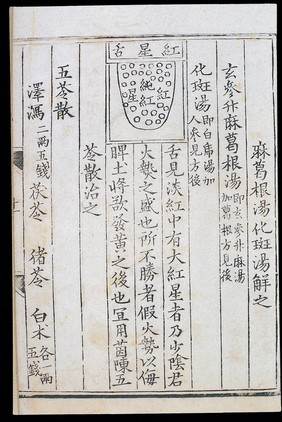 麻葛根湯化斑湯解之
玄參升麻葛根湯即玄參升麻湯加葛根方見後
化斑湯即白虎湯加人參見方後
紅星舌
純紅
紅
星
舌見淡紅中有大紅星者乃少陰君
火熱之盛也所不勝者假火勢以侮
脾土將欲發黃之後也宜用茵陳五
苓散治之
五苓散
澤瀉二兩五錢 茯苓 猪苓 白术各一兩五錢